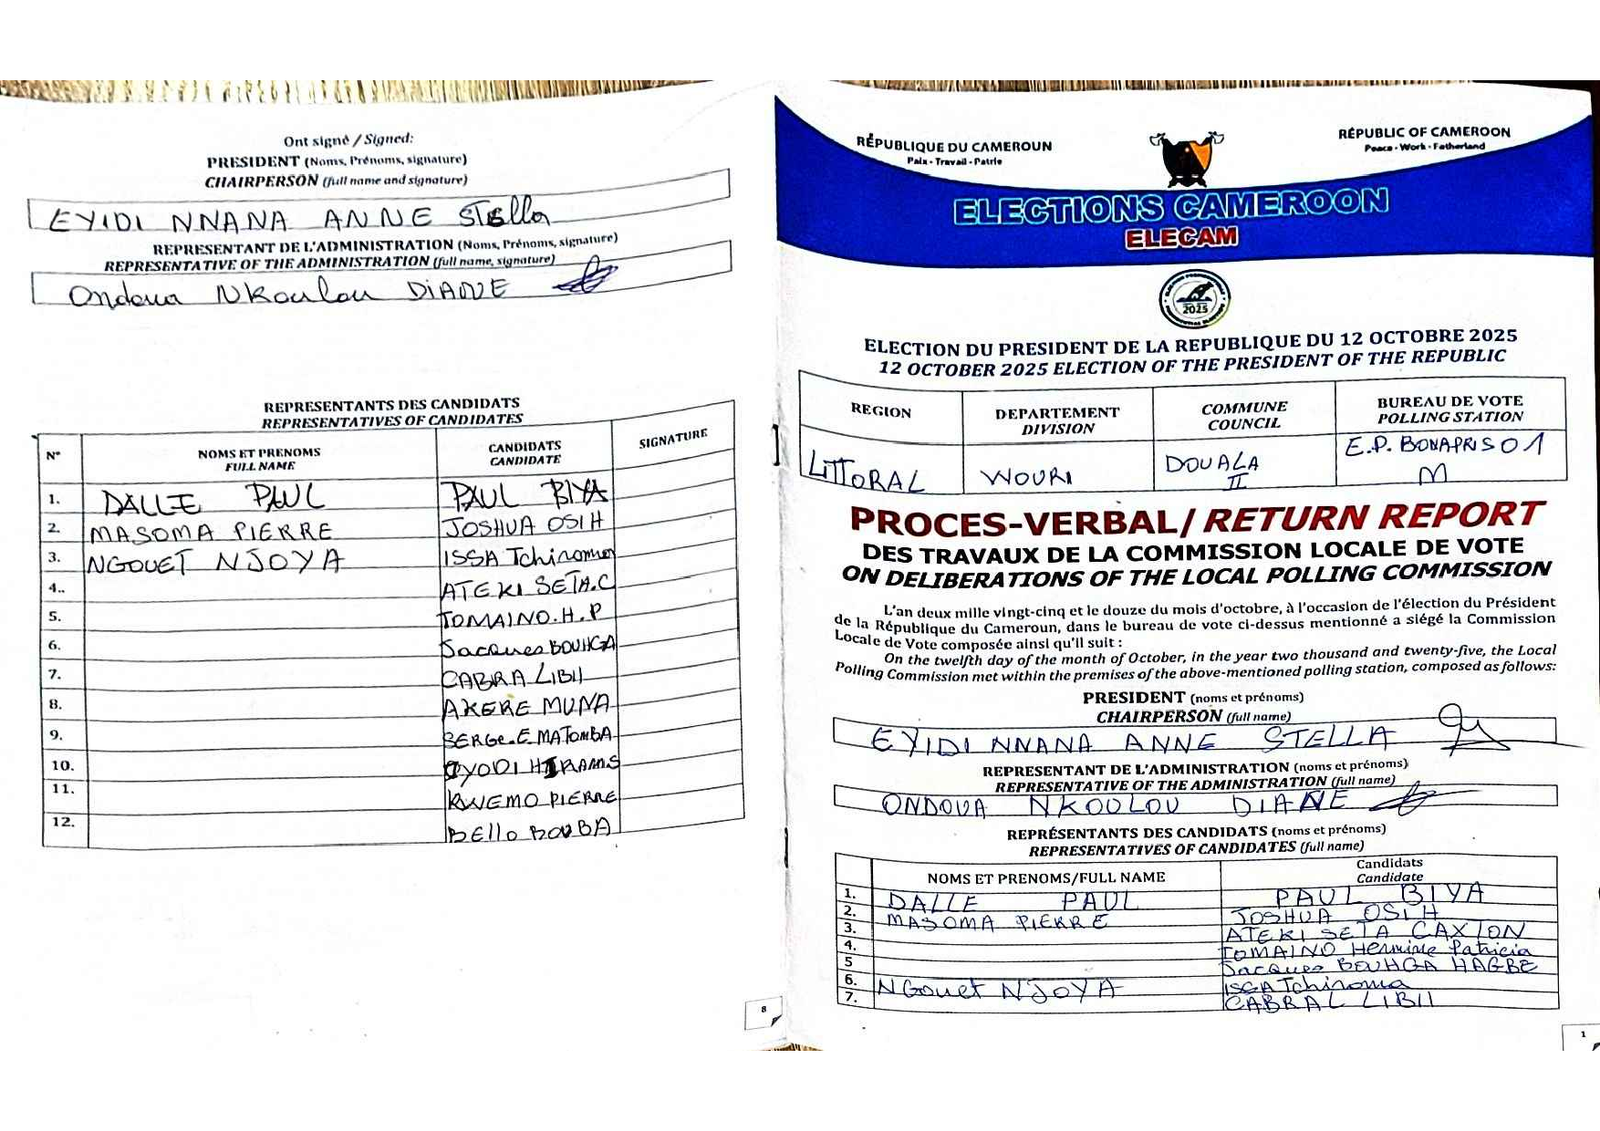 Ont signé / Signed:
PRESIDENT (Noms, Prénoms, signature)
CHAIRPERSON (full name and signature)
EYIDI NNANA ANNE Stella
REPRESENTANT DE L'ADMINISTRATION (Noms, Prénoms, signature)
REPRESENTATIVE OF THE ADMINISTRATION (full name, signature)
Ondoua NKoulou DIANE
REPRESENTANTS DES CANDIDATS
REPRESENTATIVES OF CANDIDATES
N° NOMS ET PRENOMS CANDIDATS SIGNATURE
FULL NAME CANDIDATE
1. DALLE PAUL PAUL BIYA
2. MASOMA PIERRE JOSHUA OSIH
3. NGOUET NJOYA ISSA Tchiroma
4.. ATEKI SETA.C
5. TOMAINO.H.P
6. Jacques BOUHGA
7. CABRA LIBII
8. AKERE MUNA
9. SERGE.E MATOMBA
10. IYODI HIRAMS
11. KWEMO PIERRE
12. BEllo BOUBA
8
RÉPUBLIQUE DU CAMEROUN
Paix - Travail - Patrie
RÉPUBLIC OF CAMEROON
Peace - Work - Fatherland
ELECTIONS CAMEROON
ELECAM
2025
ELECTION DU PRESIDENT DE LA REPUBLIQUE DU 12 OCTOBRE 2025
12 OCTOBER 2025 ELECTION OF THE PRESIDENT OF THE REPUBLIC
REGION DEPARTEMENT DIVISION COMMUNE COUNCIL BUREAU DE VOTE POLLING STATION
LITTORAL WOURI DOUALA II E.P. BONAPRISO 1 M
PROCES-VERBAL/ RETURN REPORT
DES TRAVAUX DE LA COMMISSION LOCALE DE VOTE
ON DELIBERATIONS OF THE LOCAL POLLING COMMISSION
L'an deux mille vingt-cinq et le douze du mois d'octobre, à l'occasion de l'élection du Président
de la République du Cameroun, dans le bureau de vote ci-dessus mentionné a siégé la Commission
Locale de Vote composée ainsi qu'il suit :
On the twelfth day of the month of October, in the year two thousand and twenty-five, the Local
Polling Commission met within the premises of the above-mentioned polling station, composed as follows:
PRESIDENT (noms et prénoms)
CHAIRPERSON (full name)
EYIDI NNANA ANNE STELLA
REPRESENTANT DE L'ADMINISTRATION (noms et prénoms)
REPRESENTATIVE OF THE ADMINISTRATION (full name)
ONDOUA NKOULOU DIANE
REPRÉSENTANTS DES CANDIDATS (noms et prénoms)
REPRESENTATIVES OF CANDIDATES (full name)
NOMS ET PRENOMS/FULL NAME Candidats
Candidate
1. DALLE PAUL PAUL BIYA
2. MASOMA PIERRE JOSHUA OSIH
3. ATEKI SETA CAXTON
4. TOMAINO Hermine Patricia
5 Jacques BOUHGA HAGBE
6. NGouet NJOYA ISSA Tchiroma
7. CABRAL LIBII
1